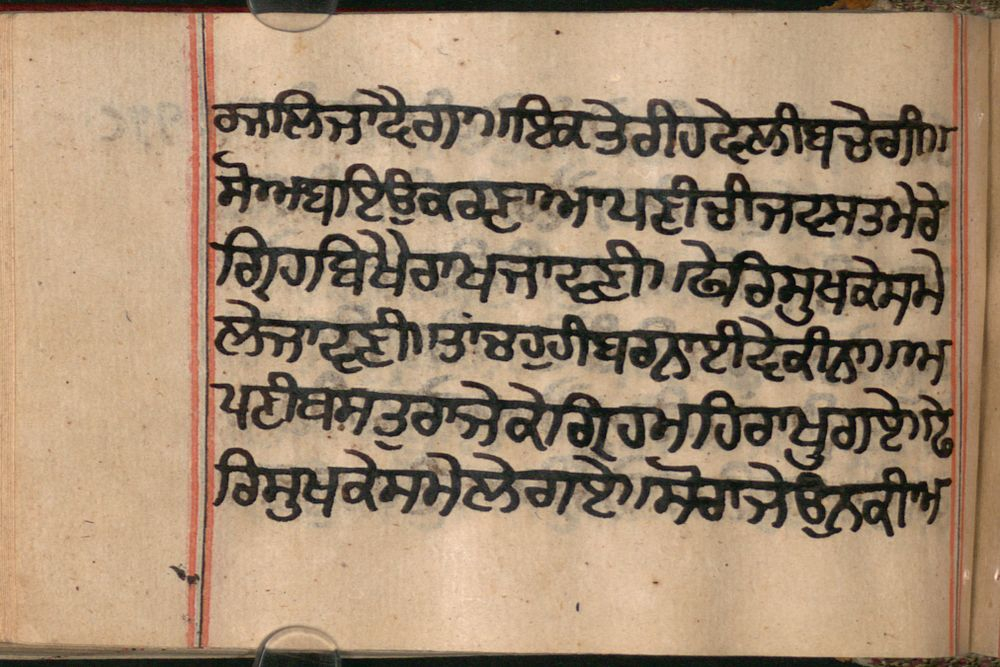 ਕਾਲਿਜਾਦੈਗਾ॥ਇਕਤੇਰੀਹਵੇਲੀਬਚੇਗੀ॥
ਸੋਅਬਇਉਕਰਣਾਆਪਣੀਚੀਜਵਸਤਮੇਰੇ
ਗ੍ਰਿਹਬਿਖੈਰਾਖਜਾਵਣੀ॥ਫੇਰਿਸੁਖਕੇਸਮੇ
ਲੇਜਾਵਣੀ॥ਤਾਂਚਹੁਹੀਬਰਨਾਈਵੇਕੀਨਾ॥ਅ
ਪਣੀਬਸਤੁਰਾਜੇਕੇਗ੍ਰਿਹਮਹਿਰਾਖੁਗਏ॥ਫੇ
ਰਿਸੁਖਕੇਸਮੇਲੇਗਏ॥ਸੋਰਾਜੇਉਨਕੀਅ